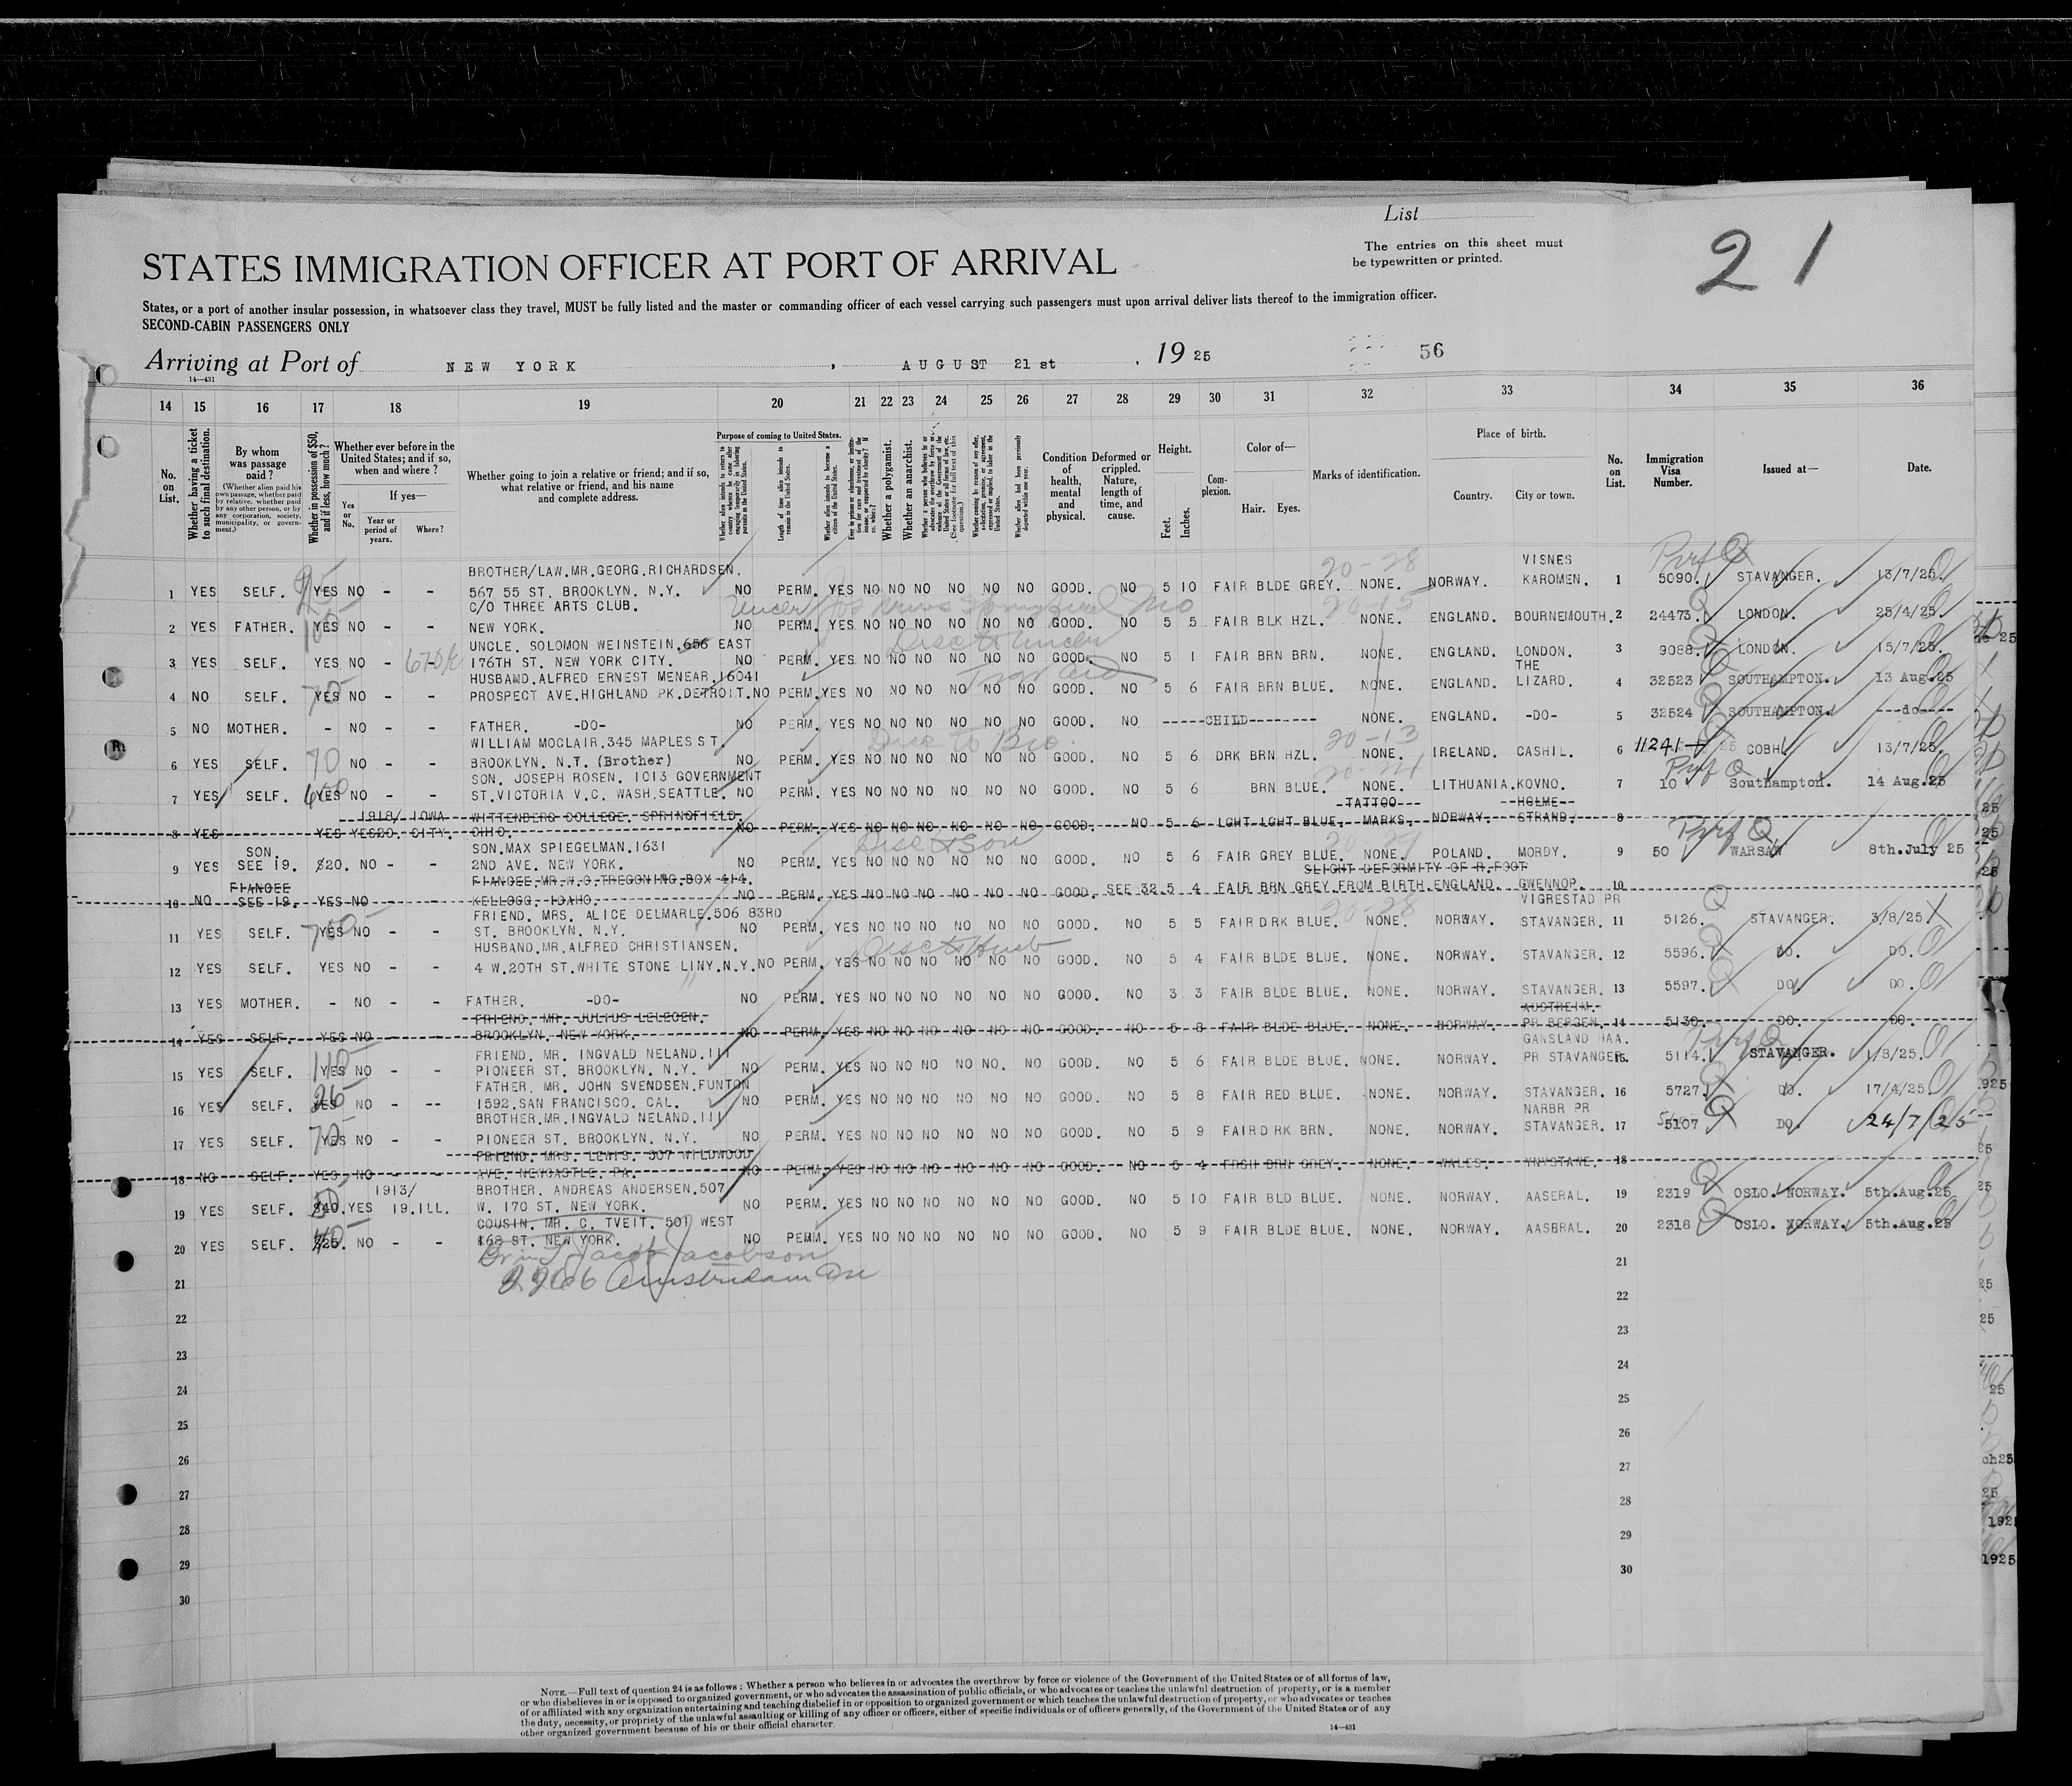 List
The entries on this sheet must
be typewritten or printed.
21
STATES IMMIGRATION OFFICER AT PORT OF ARRIVAL
States, or a port of another insular possession, in whatsoever class they travel, MUST be fully listed and the master or commanding officer of each vessel carrying such passengers must upon arrival deliver lists thereof to the immigration officer.
SECOND-CABIN PASSENGERS ONLY
Arriving at Port of NEW YORK, AUGUST 21st, 1925 56
14—431
14 15 16 17 18 19 20 21 22 23 24 25 26 27 28 29 30 31 32 33 34 35 36
No. on List.
Whether having a ticket to such final destination.
By whom was passage paid?
(Whether alien paid his own passage, whether paid by relative, whether paid by any other person, or by any corporation, society, municipality, or government.)
Whether in possession of $50, and if less, how much?
Whether ever before in the United States; and if so, when and where?
Yes or No.
If yes—
Year or period of years.
Where?
Whether going to join a relative or friend; and if so, what relative or friend, and his name and complete address.
Purpose of coming to United States.
Whether alien intends to return to country whence he came after engaging temporarily in laboring pursuits in the United States.
Length of time alien intends to remain in the United States.
Whether alien intends to become a citizen of the United States.
Whether a polygamist.
Whether an anarchist.
Condition of health, mental and physical.
Deformed or crippled. Nature, length of time, and cause.
Height.
Feet. Inches.
Complexion.
Color of—
Hair. Eyes.
Marks of identification.
Place of birth.
Country. City or town.
No. on List.
Immigration Visa Number.
Issued at—
Date.
BROTHER/LAW.MR.GEORG.RICHARDSEN. VISNES
1 YES SELF. YES NO - - 567 55 ST. BROOKLYN. N.Y. NO PERM. YES NO NO NO NO NO NO GOOD. NO 5 10 FAIR BLDE GREY. NONE. NORWAY. KAROMEN. 1 5090. STAVANGER. 13/7/25.
C/O THREE ARTS CLUB.
2 YES FATHER. YES NO - - NEW YORK. NO PERM. YES NO NO NO NO NO NO GOOD. NO 5 5 FAIR BLK HZL. NONE. ENGLAND. BOURNEMOUTH. 2 24473. LONDON. 25/4/25.
UNCLE. SOLOMON WEINSTEIN.656 EAST
3 YES SELF. YES NO - - 176TH ST. NEW YORK CITY. NO PERM. YES NO NO NO NO NO NO GOOD. NO 5 1 FAIR BRN BRN. NONE. ENGLAND. LONDON. 3 9088. LONDON. 15/7/25.
HUSBAND.ALFRED ERNEST MENEAR.16041 THE
4 NO SELF. YES NO - - PROSPECT AVE.HIGHLAND PK.DETROIT. NO PERM. YES NO NO NO NO NO NO GOOD. NO 5 6 FAIR BRN BLUE. NONE. ENGLAND. LIZARD. 4 32523 SOUTHAMPTON. 13 Aug.25
5 NO MOTHER. - NO - - FATHER. -DO- NO PERM. YES NO NO NO NO NO NO GOOD. NO -----CHILD-------- NONE. ENGLAND. -DO- 5 32524 SOUTHAMPTON. ---do----
WILLIAM MOCLAIR.345 MAPLES ST.
6 YES SELF. 70 NO - - BROOKLYN. N.T. (Brother) NO PERM. YES NO NO NO NO NO NO GOOD. NO 5 6 DRK BRN HZL. NONE. IRELAND. CASHIL. 6 11241 COBH. 13/7/25.
SON. JOSEPH ROSEN. 1013 GOVERNMENT
7 YES SELF. YES NO - - ST.VICTORIA V.C. WASH.SEATTLE. NO PERM. YES NO NO NO NO NO NO GOOD. NO 5 6 BRN BLUE. NONE. LITHUANIA. KOVNO. 7 10 Southampton. 14 Aug.25
1918/ IOWA WITTENBERG COLLEGE, SPRINGFIELD. TATTOO HOLME
8 YES YES YES 20. CITY. OHIO. NO PERM. YES NO NO NO NO NO NO GOOD. NO 5 6 LGHT LGHT BLUE. MARKS. NORWAY. STRAND. 8
SON. SON.MAX SPIEGELMAN.1631
9 YES SEE 19. $20. NO - - 2ND AVE. NEW YORK. NO PERM. YES NO NO NO NO NO NO GOOD. NO 5 6 FAIR GREY BLUE. NONE. POLAND. MORDY. 9 50 WARSAW 8th.July 25
FIANCEE FIANCEE.MR.W.G.TREGONING.BOX 414. SLIGHT DEFORMITY OF R.FOOT
10 NO SEE 19. YES NO - - KELLOGG. IDAHO. NO PERM. YES NO NO NO NO NO NO GOOD. SEE 32. 5 4 FAIR BRN GREY. FROM BIRTH. ENGLAND. GWENNOP. 10
FRIEND. MRS. ALICE DELMARLE.506 83RD VIGRESTAD PR
11 YES SELF. YES NO - - ST. BROOKLYN. N.Y. NO PERM. YES NO NO NO NO NO NO GOOD. NO 5 5 FAIR DRK BLUE. NONE. NORWAY. STAVANGER. 11 5126. STAVANGER. 3/8/25.
HUSBAND.MR.ALFRED CHRISTIANSEN.
12 YES SELF. YES NO - - 4 W.20TH ST.WHITE STONE LINY.N.Y. NO PERM. YES NO NO NO NO NO NO GOOD. NO 5 4 FAIR BLDE BLUE. NONE. NORWAY. STAVANGER. 12 5596. DO. DO.
13 YES MOTHER. - NO - - FATHER. -DO- NO PERM. YES NO NO NO NO NO NO GOOD. NO 3 3 FAIR BLDE BLUE. NONE. NORWAY. STAVANGER. 13 5597. DO. DO.
FRIEND. MR. JULIUS LELEGEN. AUSTREIM.
14 YES SELF. YES NO - - BROOKLYN. NEW YORK. NO PERM. YES NO NO NO NO NO NO GOOD. NO 5 8 FAIR BLDE BLUE. NONE. NORWAY. PR BERGEN. 14 5130. DO. DO.
FRIEND. MR. INGVALD NELAND.111 GANSLAND HAA.
15 YES SELF. YES NO - - PIONEER ST. BROOKLYN. N.Y. NO PERM. YES NO NO NO NO NO. NO GOOD. NO 5 6 FAIR BLDE BLUE. NONE. NORWAY. PR STAVANGER. 15. 5114. STAVANGER. 1/8/25.
FATHER. MR. JOHN SVENDSEN.FUNTON
16 YES SELF. YES NO - -- 1592.SAN FRANCISCO. CAL. NO PERM. YES NO NO NO NO NO NO GOOD. NO 5 8 FAIR RED BLUE. NONE. NORWAY. STAVANGER. 16 5727. DO. 17/4/25.
BROTHER.MR.INGVALD NELAND.111 NARBR PR
17 YES SELF. YES NO - - PIONEER ST. BROOKLYN. N.Y. NO PERM. YES NO NO NO NO NO NO GOOD. NO 5 9 FAIR DRK BRN. NONE. NORWAY. STAVANGER. 17 5107 DO. 24/7/25
FRIEND. MRS. LEWIS. 307 WILDWOOD
18 NO SELF. YES. NO - - AVE. NEWCASTLE. PA. NO PERM. YES NO NO NO NO NO NO GOOD. NO 5 4 FRSH BRN GREY. NONE. WALES. 18
1913/ BROTHER. ANDREAS ANDERSEN.507
19 YES SELF. $40. YES 19.ILL. W. 170 ST. NEW YORK. NO PERM. YES NO NO NO NO NO NO GOOD. NO 5 10 FAIR BLD BLUE. NONE. NORWAY. AASERAL. 19 2319 OSLO. NORWAY. 5th.Aug.25
COUSIN. MR. C. TVEIT. 501 WEST
20 YES SELF. $25. NO - - 168 ST. NEW YORK. NO PERM. YES NO NO NO NO NO NO GOOD. NO 5 9 FAIR BLDE BLUE. NONE. NORWAY. AASBRAL. 20 2318 OSLO. NORWAY. 5th.Aug.25
Jacob Jacobson
Amsterdam Ave
21 21
22 22
23 23
24 24
25 25
26 26
27 27
28 28
29 29
30 30
NOTE.—Full text of question 24 is as follows: Whether a person who believes in or advocates the overthrow by force or violence of the Government of the United States or of all forms of law,
or who disbelieves in or is opposed to organized government, or who advocates the assassination of public officials, or who advocates or teaches the unlawful destruction of property, or is a member
of or affiliated with any organization entertaining and teaching disbelief in or opposition to organized government or which teaches the unlawful destruction of property, or who advocates or teaches
the duty, necessity, or propriety of the unlawful assaulting or killing of any officer or officers, either of specific individuals or of officers generally, of the Government of the United States or of any
other organized government because of his or their official character.
14—431